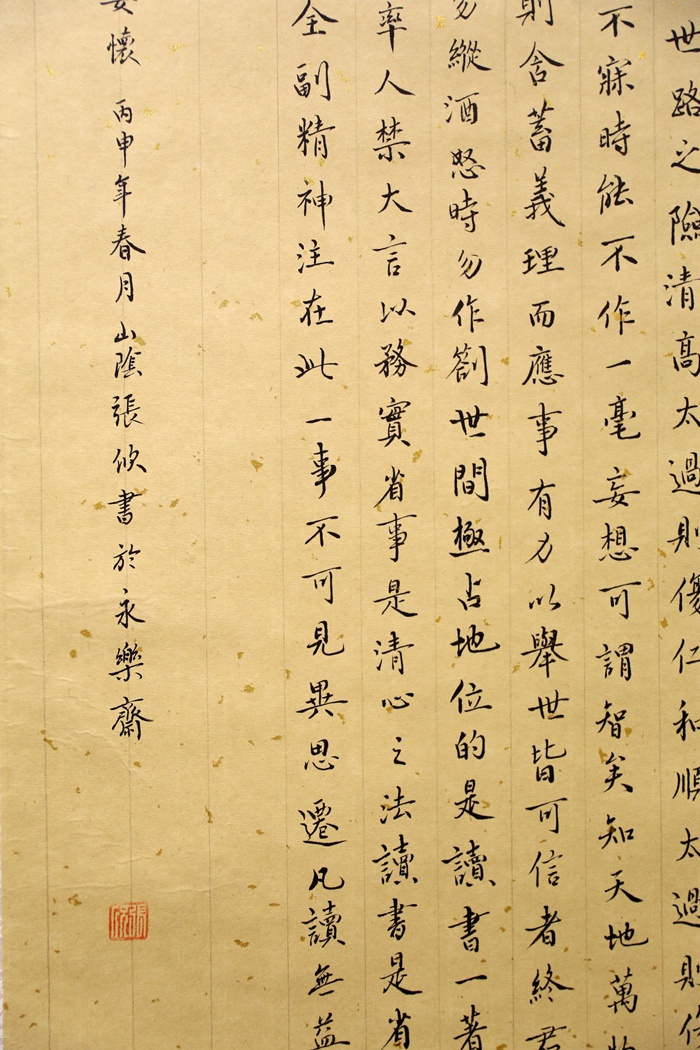 世路之險清高太過則傷仁和順太過則
不寐時能不作一毫妄想可謂智矣知天地萬物
則含蓄義理而應事有力以舉世皆可信者終君
勿縱酒怒時勿作劄世間極占地位的是讀書一著
率人禁大言以務實省事是清心之法讀書是省
全副精神注在此一事不可見異思遷凡讀無益
懷
丙申年春月山陰張攸書於永樂齋